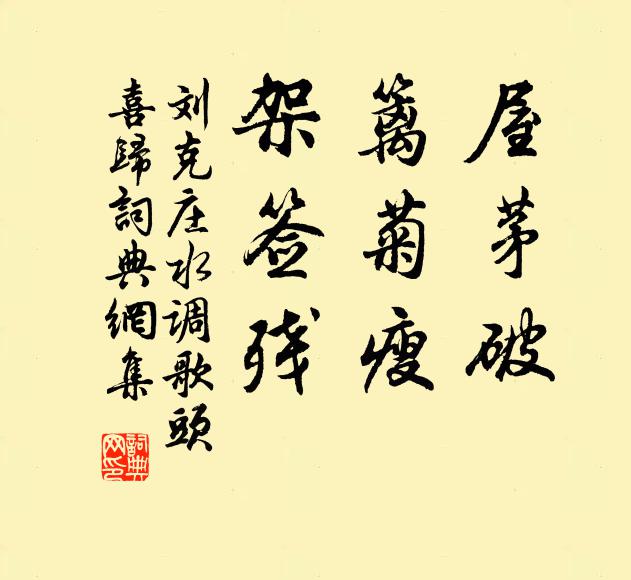 屋茅破
篱菊瘦
架签残
刘克庄水调歌頭
喜歸詞典網集
詞典网印